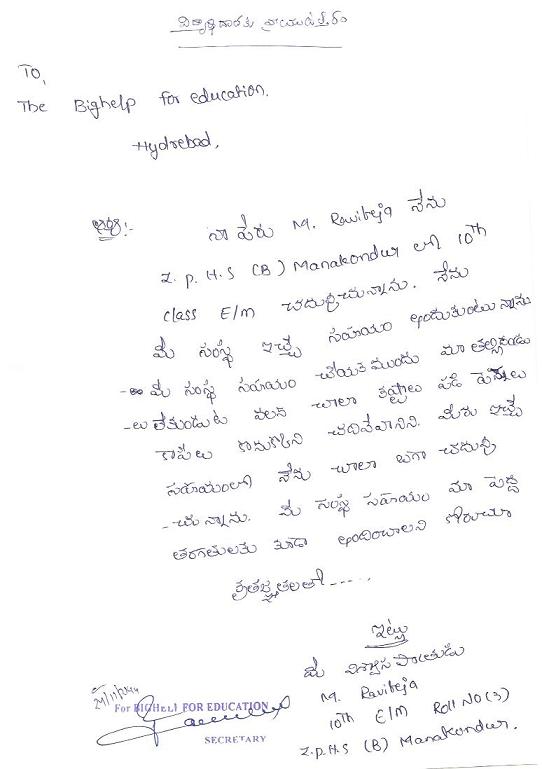 To,
The Bighelp for education.
Hydrebad,
నా పేరు M. Raviteja నేను
Z. p. H. S (B) Manakondur లో 10th
class E/m చదువుచున్నాను. నేను
మీ సంస్థ ఇచ్చే సహయం అందుకుంటున్నాను
మీ సంస్థ సహయం చేయక ముందు మా తల్లిదండ్రు
-లు లేకుండుట వలన చాలా కష్టాలు పడి పెన్నులు
కాపీలు కొనుక్కొని చదివేవానిని. మీరు ఇచ్చే
సహయంలో నేను చాలా బాగా చదువు
-చున్నాను. మీ సంస్థ సహయం మా పెద్ద
తరగతులకు కూడా అందించాలని కోరుచూ
కృతజ్ఞతలతో-----.
ఇట్లు
మీ విశ్వాస పాత్రుడు
M. Raviteja
10th E/m Roll NO (3)
Z. p. H. S (B) Manakondur.
For BIGHELP FOR EDUCATION
SECRETARY